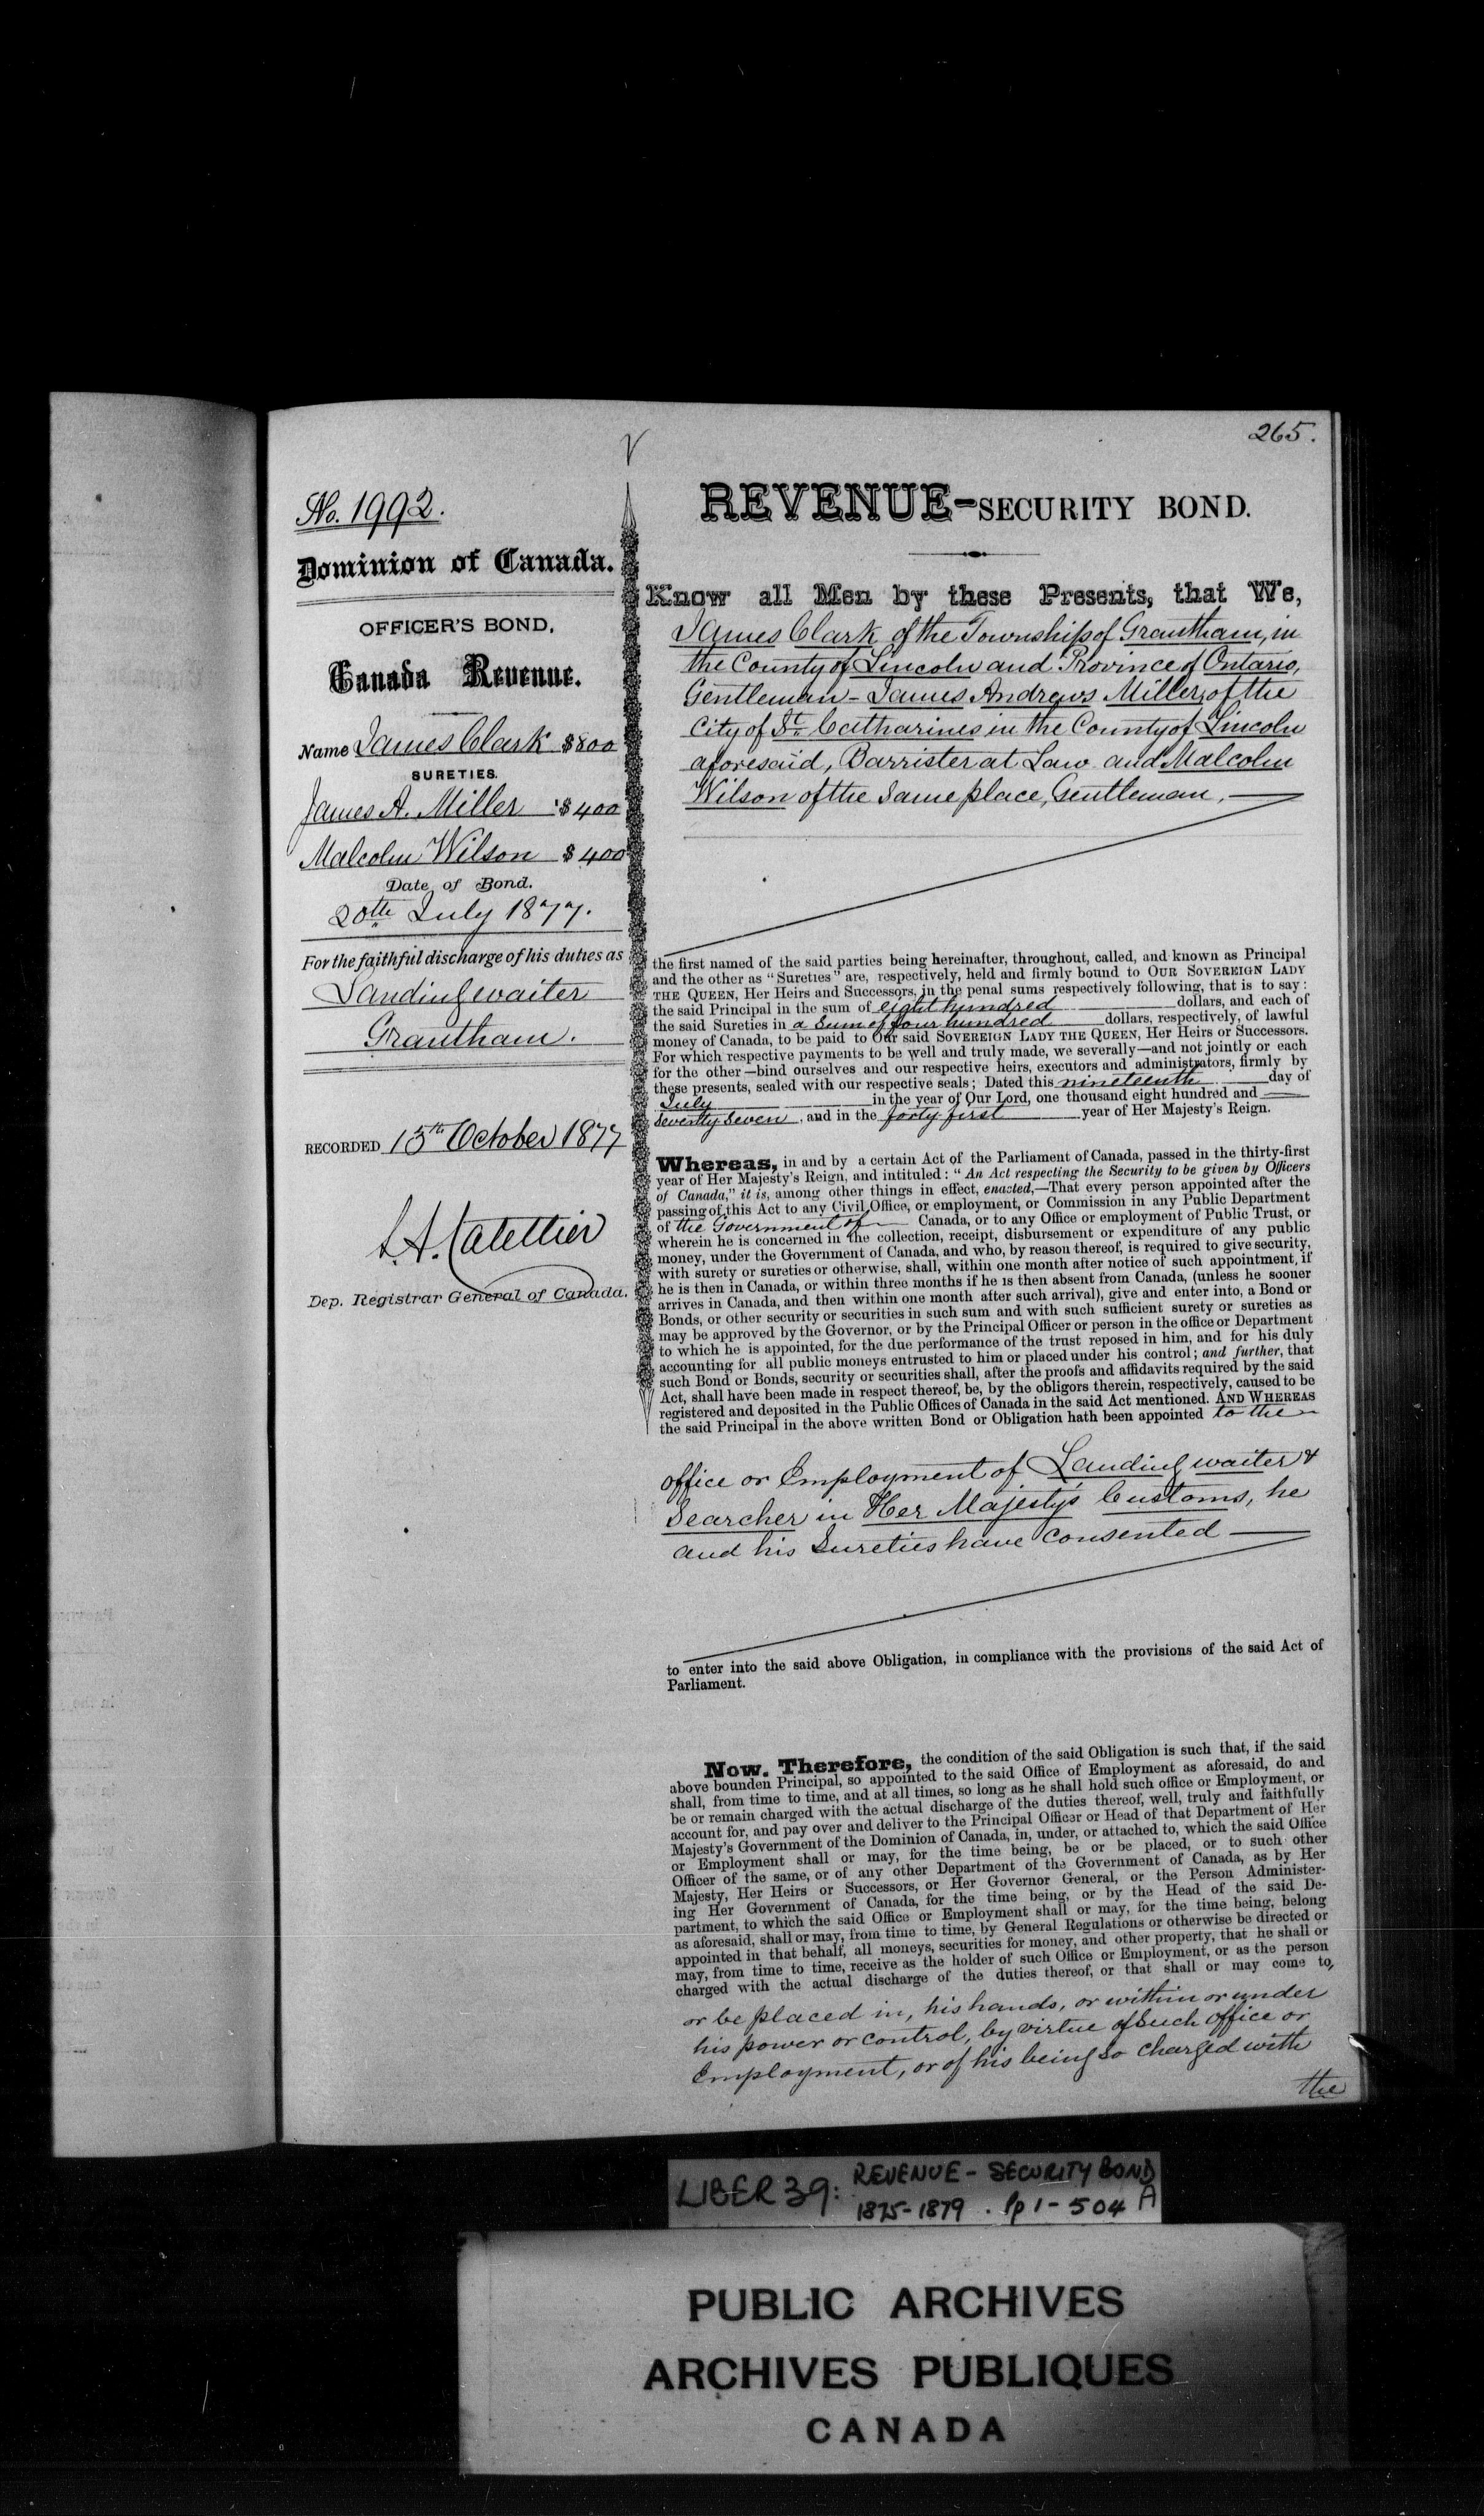 265.
No. 1992.
Dominion of Canada.
OFFICER'S BOND,
Canada Revenue.
Name James Clark $800
SURETIES.
James A. Miller $400
Malcolm Wilson $400
Date of Bond.
20th July 1877.
For the faithful discharge of his duties as
Landing waiter
Grantham.
RECORDED 15th October 1877
Dep. Registrar General of Canada.
REVENUE-SECURITY BOND.
Know all Men by these Presents, that We,
James Clark of the Township of Grantham, in
the County of Lincoln and Province of Ontario,
Gentleman - James Andrews Miller, of the
City of St. Catharines in the County of Lincoln
aforesaid, Barrister at Law and Malcolm
Wilson of the same place, Gentleman.
the first named of the said parties being hereinafter, throughout, called, and known as Principal
and the other as "Sureties" are, respectively, held and firmly bound to OUR SOVEREIGN LADY
THE QUEEN, Her Heirs and Successors, in the penal sums respectively following, that is to say:
the said Principal in the sum of eight hundred dollars, and each of
the said Sureties in a sum of four hundred dollars, respectively, of lawful
money of Canada, to be paid to Our said SOVEREIGN LADY THE QUEEN, Her Heirs or Successors.
For which respective payments to be well and truly made, we severally—and not jointly or each
for the other—bind ourselves and our respective heirs, executors and administrators, firmly by
these presents, sealed with our respective seals; Dated this nineteenth day of
July in the year of Our Lord, one thousand eight hundred and
seventy seven, and in the forty first year of Her Majesty's Reign.
Whereas, in and by a certain Act of the Parliament of Canada, passed in the thirty-first
year of Her Majesty's Reign, and intituled: "An Act respecting the Security to be given by Officers
of Canada," it is, among other things in effect, enacted,—That every person appointed after the
passing of this Act to any Civil Office, or employment, or Commission in any Public Department
of the Government of Canada, or to any Office or employment of Public Trust, or
wherein he is concerned in the collection, receipt, disbursement or expenditure of any public
money, under the Government of Canada, and who, by reason thereof, is required to give security,
with surety or sureties or otherwise, shall, within one month after notice of such appointment, if
he is then in Canada, or within three months if he is then absent from Canada, (unless he sooner
arrives in Canada, and then within one month after such arrival), give and enter into, a Bond or
Bonds, or other security or securities in such sum and with such sufficient surety or sureties as
may be approved by the Governor, or by the Principal Officer or person in the office or Department
to which he is appointed, for the due performance of the trust reposed in him, and for his duly
accounting for all public moneys entrusted to him or placed under his control; and further, that
such Bond or Bonds, security or securities shall, after the proofs and affidavits required by the said
Act, shall have been made in respect thereof, be, by the obligors therein, respectively, caused to be
registered and deposited in the Public Offices of Canada in the said Act mentioned. AND WHEREAS
the said Principal in the above written Bond or Obligation hath been appointed to the
office or Employment of Landing waiter &
Searcher in Her Majesty's Customs, he
and his Sureties have consented
to enter into the said above Obligation, in compliance with the provisions of the said Act of
Parliament.
Now. Therefore, the condition of the said Obligation is such that, if the said
above bounden Principal, so appointed to the said Office of Employment as aforesaid, do and
shall, from time to time, and at all times, so long as he shall hold such office or Employment, or
be or remain charged with the actual discharge of the duties thereof, well, truly and faithfully
account for, and pay over and deliver to the Principal Officer or Head of that Department of Her
Majesty's Government of the Dominion of Canada, in, under, or attached to, which the said Office
or Employment shall or may, for the time being, be or be placed, or to such other
Officer of the same, or of any other Department of the Government of Canada, as by Her
Majesty, Her Heirs or Successors, or Her Governor General, or the Person Administer-
ing Her Government of Canada, for the time being, or by the Head of the said De-
partment, to which the said Office or Employment shall or may, for the time being, belong
as aforesaid, shall or may, from time to time, by General Regulations or otherwise be directed or
appointed in that behalf, all moneys, securities for money, and other property, that he shall or
may, from time to time, receive as the holder of such Office or Employment, or as the person
charged with the actual discharge of the duties thereof, or that shall or may come to,
or be placed in, his hands, or within or under
his power or control, by virtue of such office or
Employment, or of his being so charged with
the
LIBER 39: REVENUE - SECURITY BOND
1875-1879 . Pp 1 - 504 A
PUBLIC ARCHIVES
ARCHIVES PUBLIQUES
CANADA